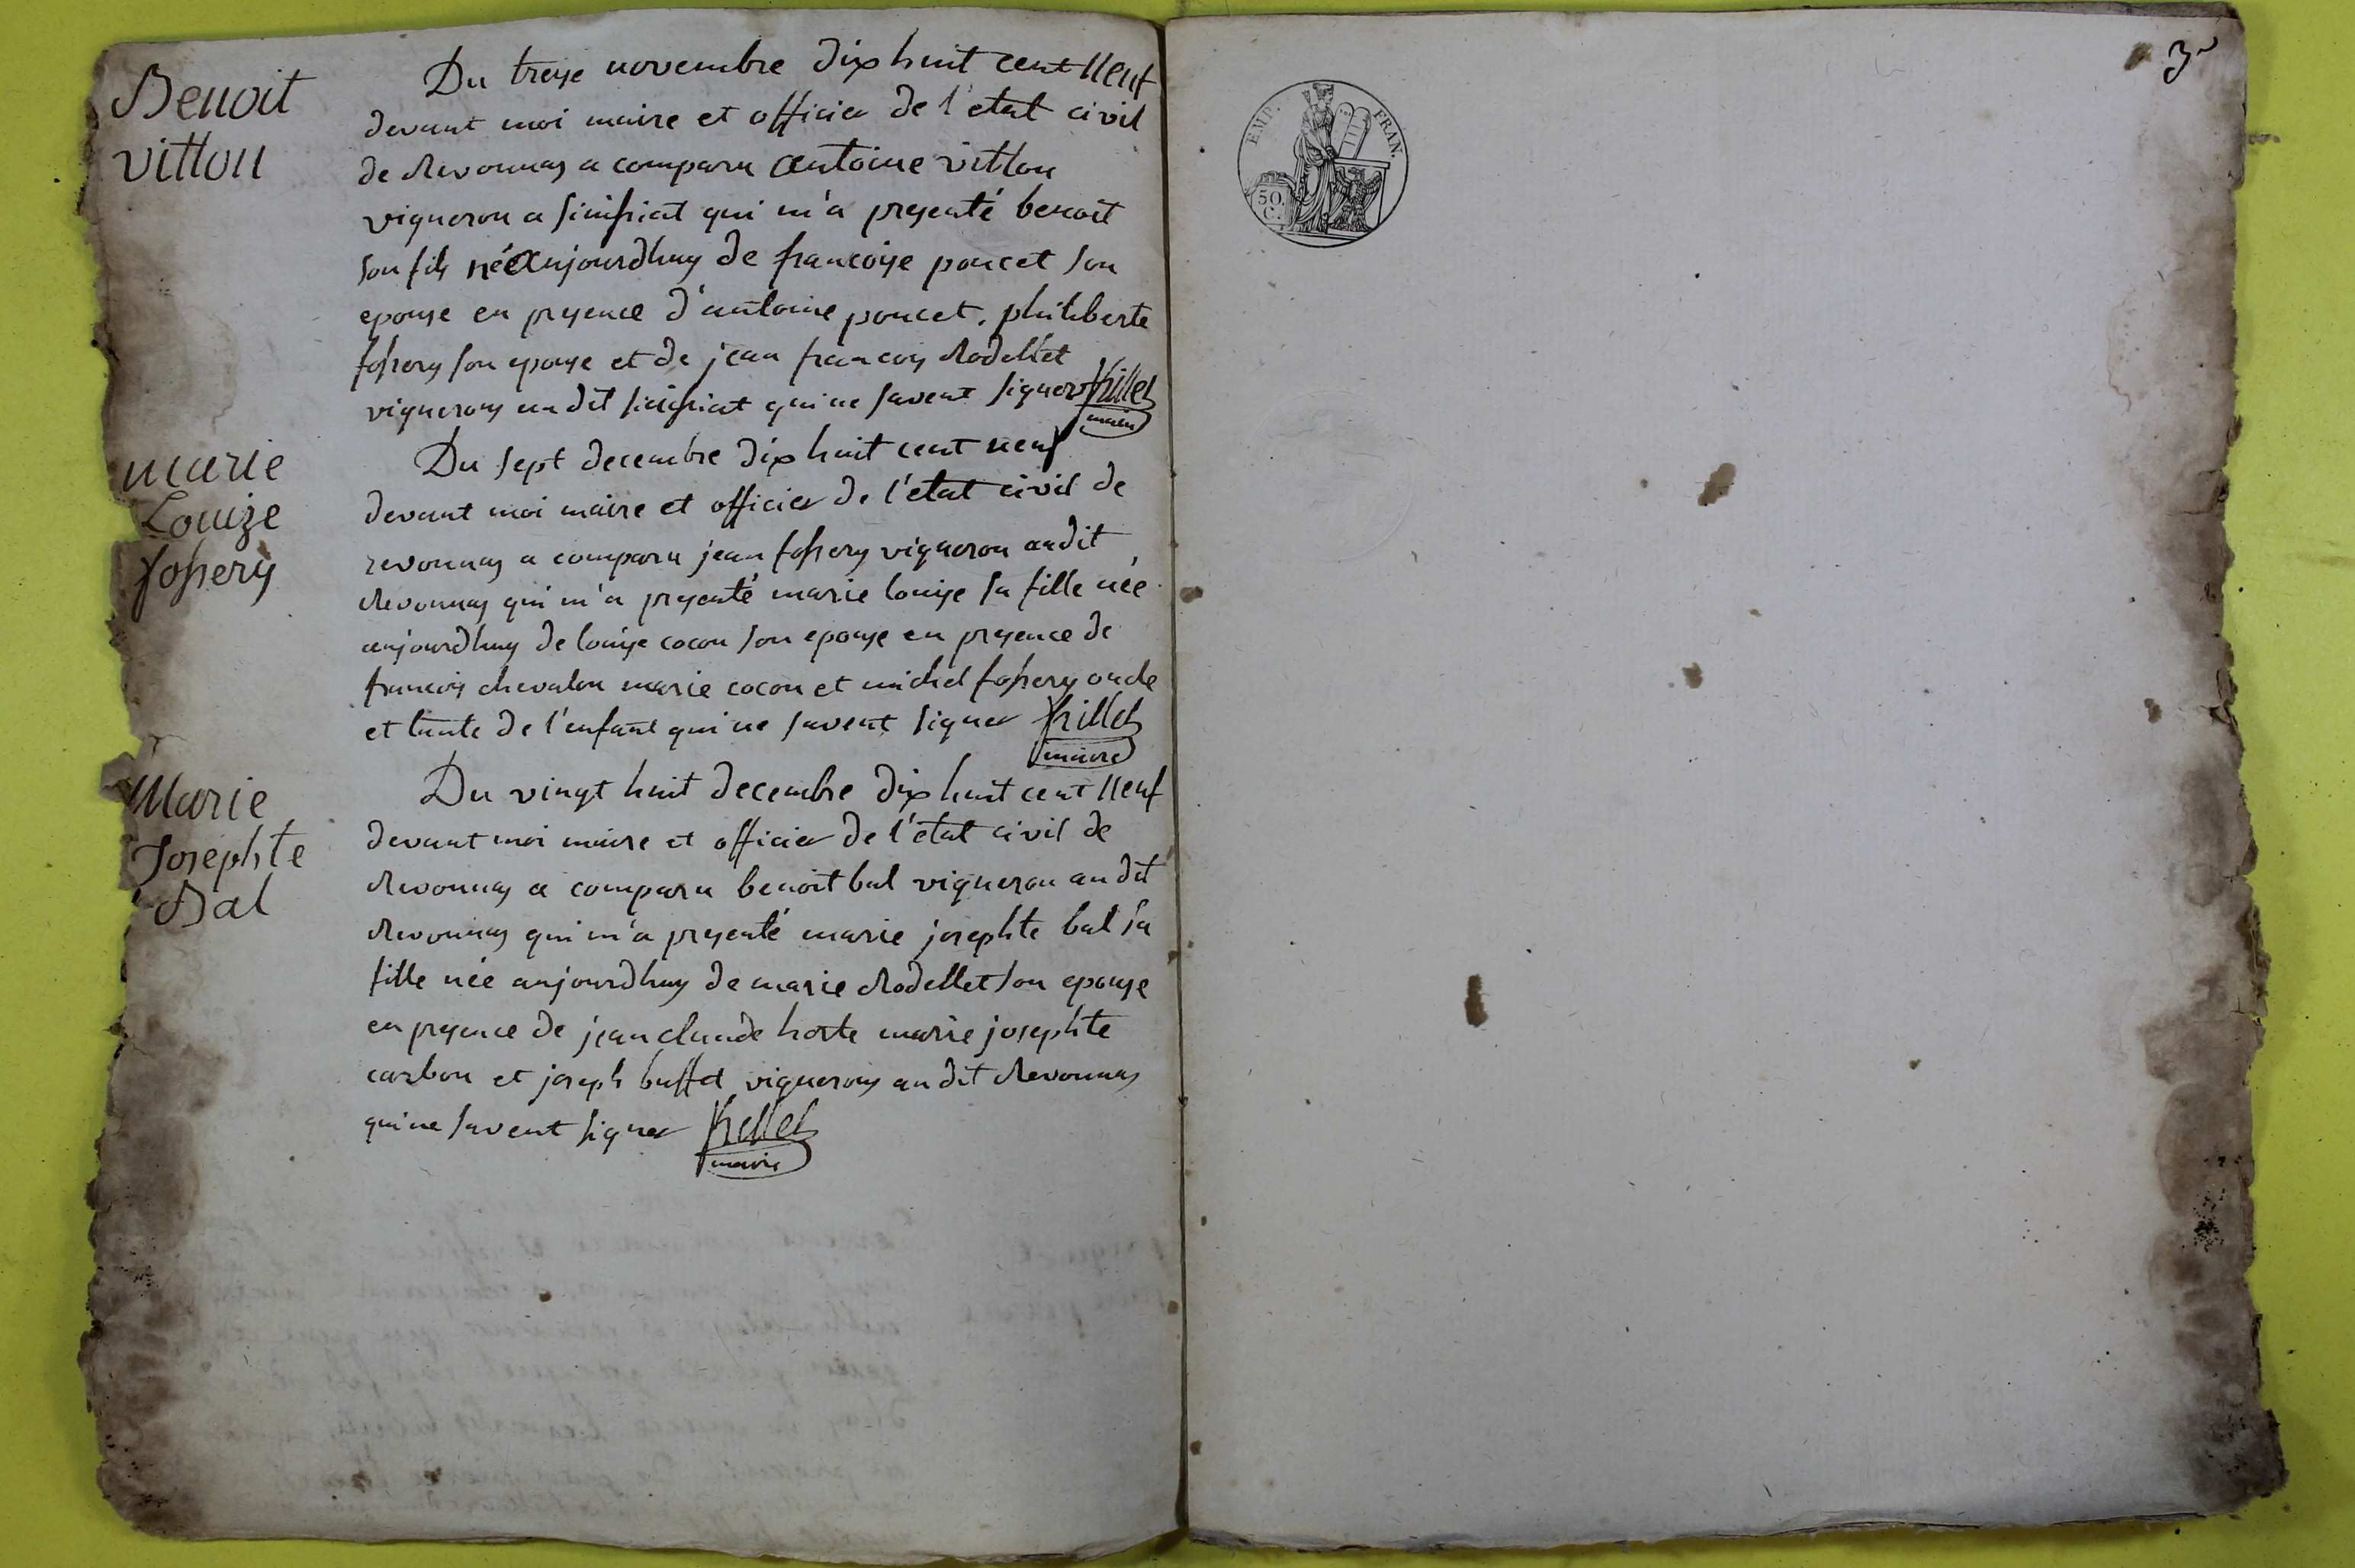 Benoit
vitton
Du treze novembre dix huit cent neuf
devant moi maire et officier de l'etat civil
de Revonnas a comparu antoine vitton
vigneron a simfriat qui m'a presenté benoit
son fils né aujourdhuy de francoise poncet son
epouse en presence d'antoine poncet. philiberte
fossery son epouse et de jean francois Rodellet
vignerons au dit simfriat qui ne savent signer
maire
marie
Louize
fossery
Du sept decembre dix huit cent neuf
devant moi maire et officier de l'etat civil de
revonnas a comparu jean fossery vigneron audit
Revonnas qui m'a presenté marie louise sa fille née
aujourdhuy de louise cocon son epouse en presence de
francois chevalon marie cocon et michel fossery oncle
et tante de l'enfant qui ne savent signer
maire
Marie
Josephte
Bal
Du vingt huit decembre dix huit cent neuf
devant moi maire et officier de l'etat civil de
Revonnas a comparu benoit bal vigneron au dit
Revonnas qui m'a presenté marie josephte bal sa
fille née aujourdhuy de marie Rodellet son epouse
en presence de jean claude horte marie josephte
carbon et joseph buffet vignerons au dit Revonnas
qui ne savent signer
maire
EMP. FRAN.
50.
C.